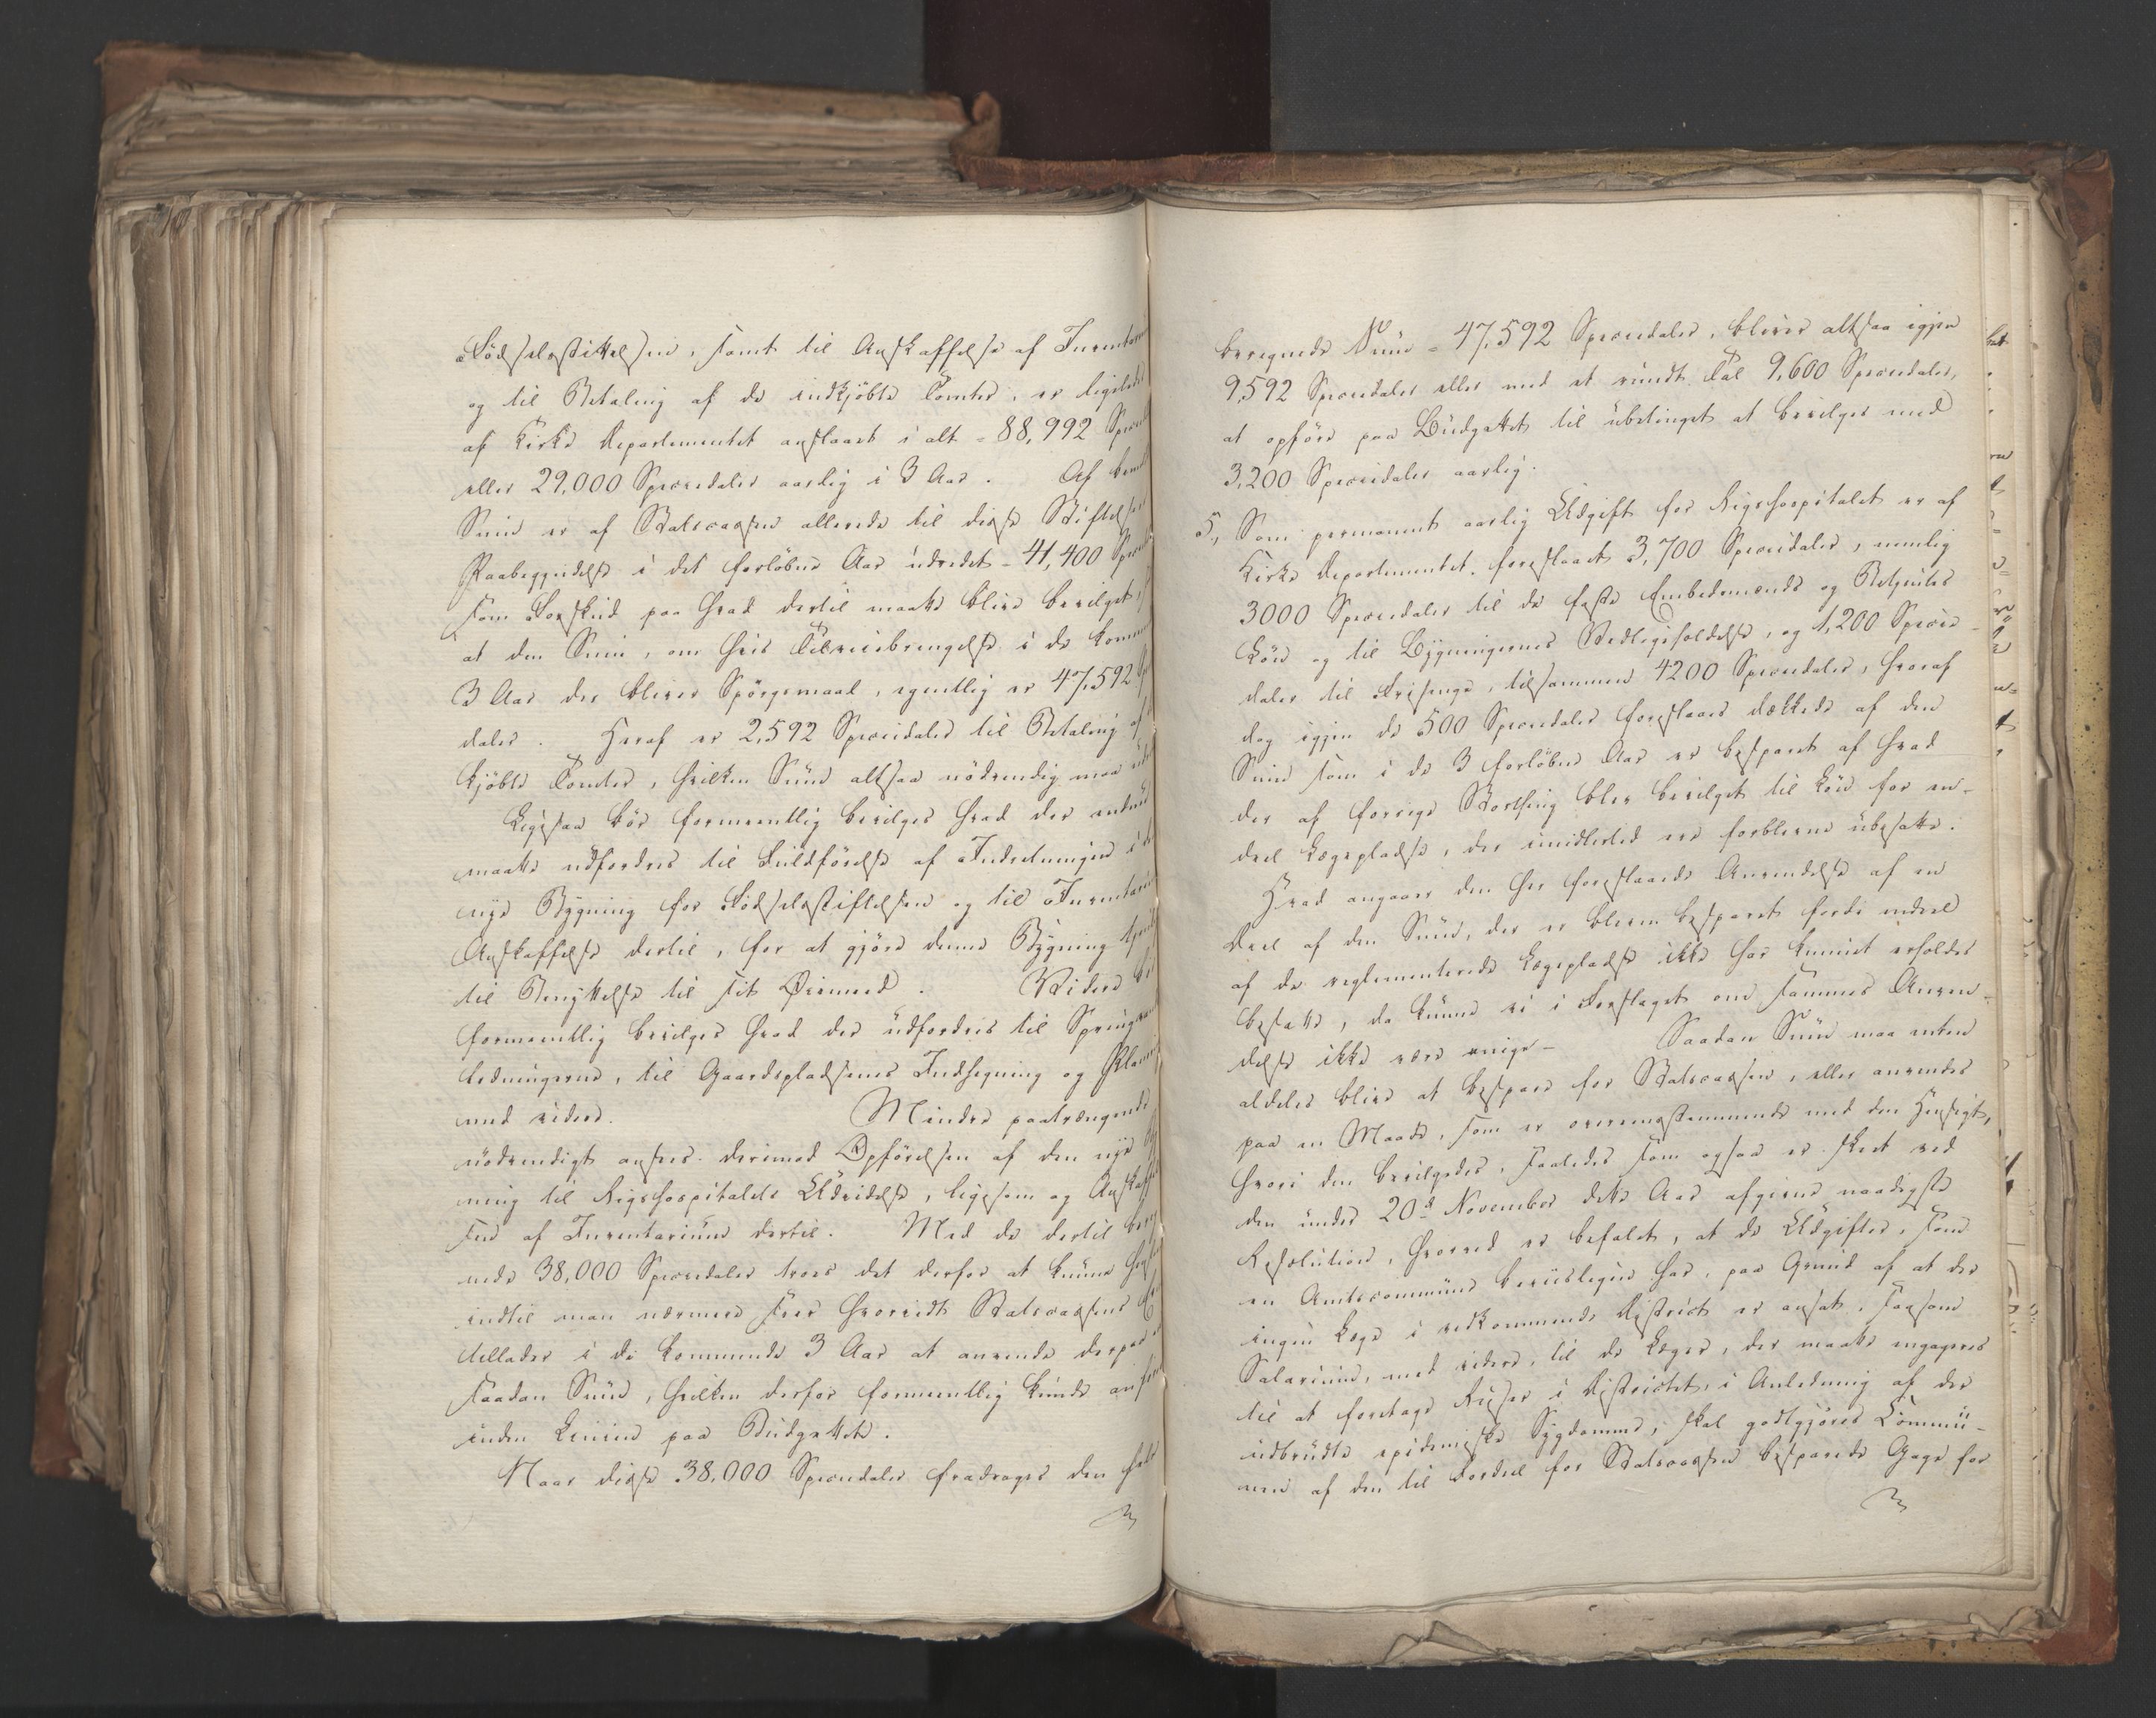 Fødselsstiftelsen, samt til Anskaffelse af Inventar
og til Betaling af de indkjøbte Tomter, er ligeledes
af Kirke Departementet anslaaet i alt = 88,992 Specie
eller 29,000 Speciedaler aarlig i 3 Aar. Af bemel
Sum er af Statscassen allerede til disse Stiftelsers
Paabegyndelse i det forløbne Aar udredet = 41,400 Specie
som Forskud paa hvad dertil maatte blive bevilget,
at den Sum, om hvis Tilveiebringelse i de kommen
3 Aar der bliver Spørgsmaal, egentlig er 47,592 Sp
daler. Heraf er 2,592 Speciedaler til Betaling af
kjøbte Tomter, hvilken Sum altsaa nødvendig maa
Ligesaa bør formeentlig bevilges hvad der endnu
maatte udfordres til Fuldførelse af Indretningen i
nye Bygning for Fødselsstiftelsen og til Inventarii
Anskaffelse dertil, for at gjøre denne Bygning tjenl
til Benyttelse til sit Øiemeed. Videre bø
formeentlig bevilges hvad der udfordres til Springvand
ledningerne, til Gaardspladsenes Indhegning og Planer
med videre. Mindre paatrængende
nødvendigt ansees derimod Opførelsen af den nye Byg
ning til Rigshospitalets Udvidelse, ligesom og Anskaffel
sen af Inventarium dertil. Med de dertil bereg
nede 38,000 Speciedaler troes det derfor at kunne
indtil man nærmere seer hvorvidt Statscassens
tillader i de kommende 3 Aar at anvende derpaa
saadan Sum, hvilken derfor formeentlig kunde anføres
inden Linien paa Budgettet.
Naar disse 38,000 Speciedaler fradrages den hele
beregnede Sum = 47,592 Speciedaler, bliver altsaa igjen
9,592 Speciedaler eller med et rundt Tal 9,600 Speciedaler,
at opføre paa Budgettet til ubetinget at bevilges med
3,200 Speciedaler aarlig.
5, Som permanent aarlig Udgift for Rigshospitalet er af
Kirke Departementet foreslaaet 3,700 Speciedaler, nemlig
3000 Speciedaler til de faste Embedsmænds og Betjentes
Løn og til Bygningernes Vedligeholdelse, og 1,200 Specie-
daler til Frisenge, tilsammen 4200 Speciedaler, hvoraf
dog igjen de 500 Speciedaler foreslaaes dækkede af den
Sum som i de 3 forløbne Aar er besparet af hvad
der af forrige Storthing blev bevilget til Løn for en-
deel Lægepladse, der imidlertid ere forblevne ubesatte.
Hvad angaaer den her foreslaaede Anvendelse af en
Deel af den Sum, der er bleven besparet fordi endeel
af de reglementerede Lægepladse ikke har kunnet erholdes
besatte, da kunne vi i Forslaget om sammes Anven-
delse ikke være enige – Saadan Sum maa enten
aldeles blive at bespare for Statscassen, eller anvendes
paa en Maade, som er overensstemmende med den Hensigt,
hvori den bevilgedes, saaledes som ogsaa er skeet ved
den under 20de November dette Aar afgivne naadigste
Resolution, hvorved er befalet, at de Udgifter, som
en Amtscommune beviisligen har, paa Grund af at der
ingen Læge i vedkommende District er ansat, saasom
Salarium, med videre, til de Læger, der maatte engageres
til at foretage Reiser i Districtet, i Anledning af der
udbrudte epidemiske Sygdomme, skal godtgjøres Commu-
nen af den til Fordeel for Statscassen besparede Gage for